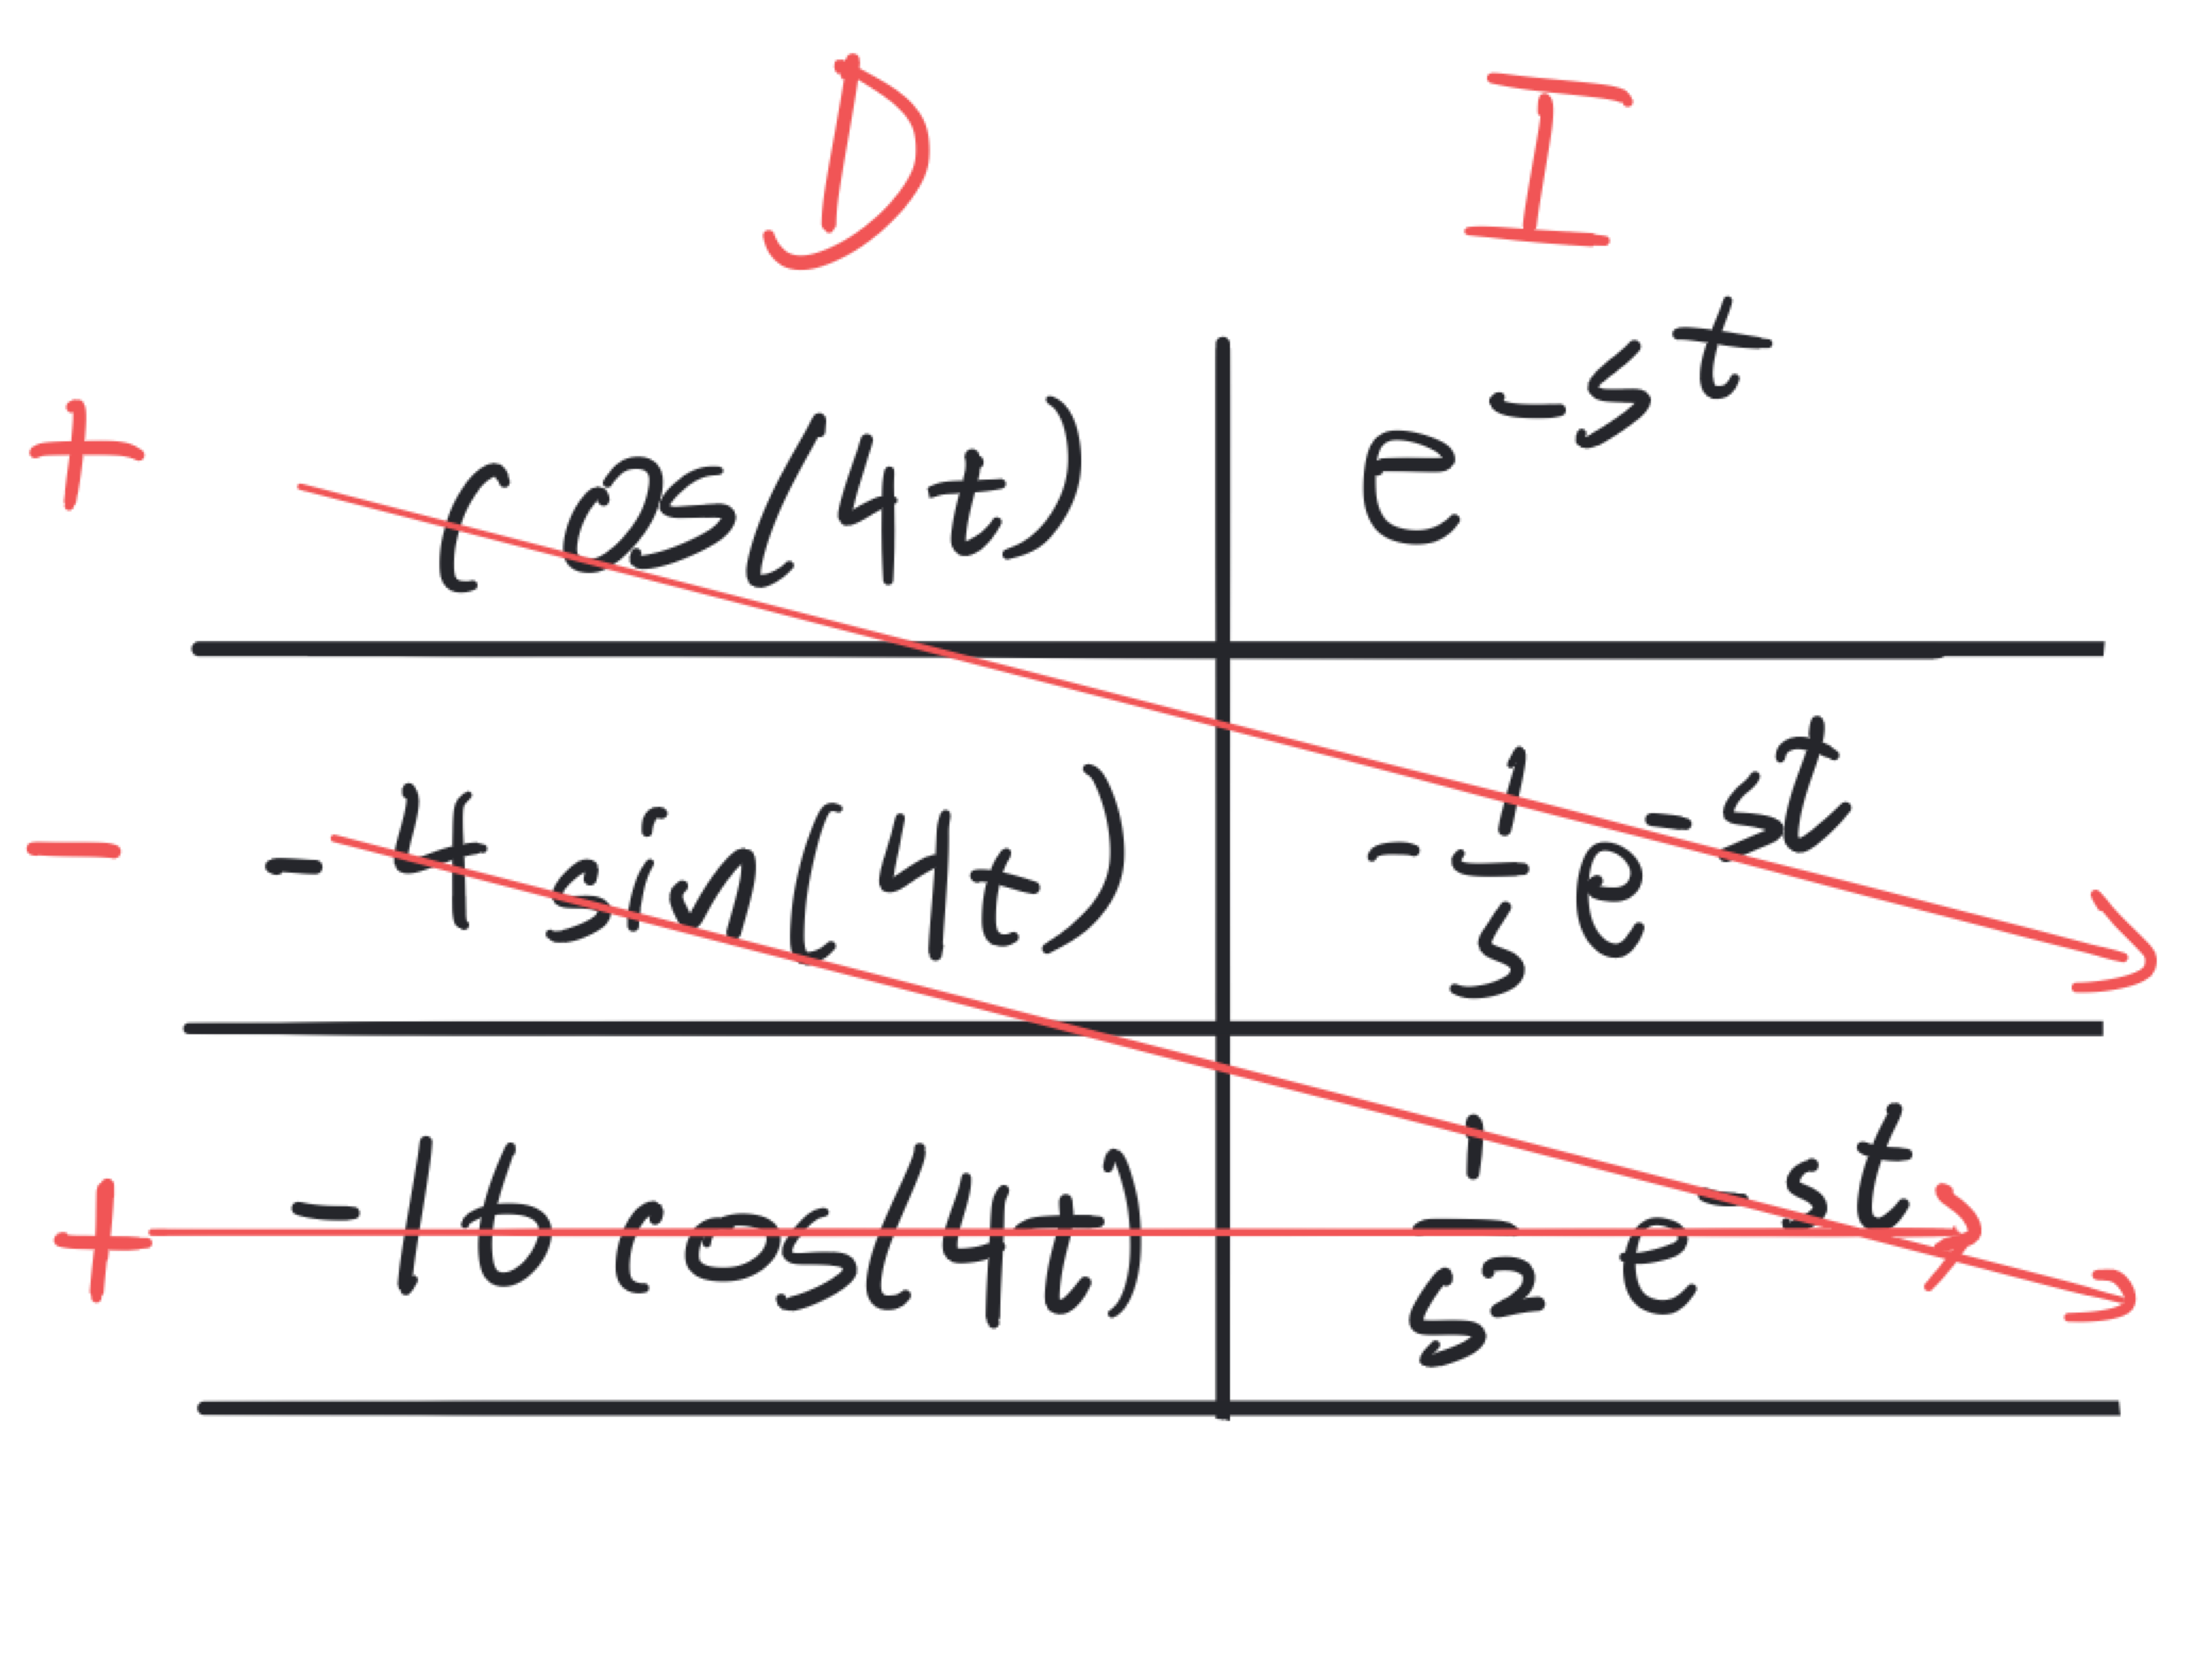 D I
+ cos(4t) e^{-st}
- -4 sin(4t) -\frac{1}{s} e^{-st}
+ -16 cos(4t) \frac{1}{s^2} e^{-st}